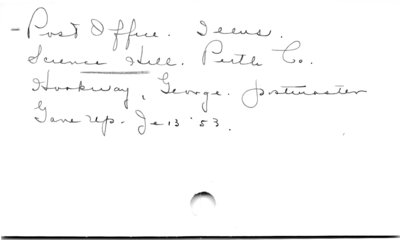 - Post Office.
Science Hill. Perth Co.
Hookway, George. postmaster
Gave up. Je 13 '53.